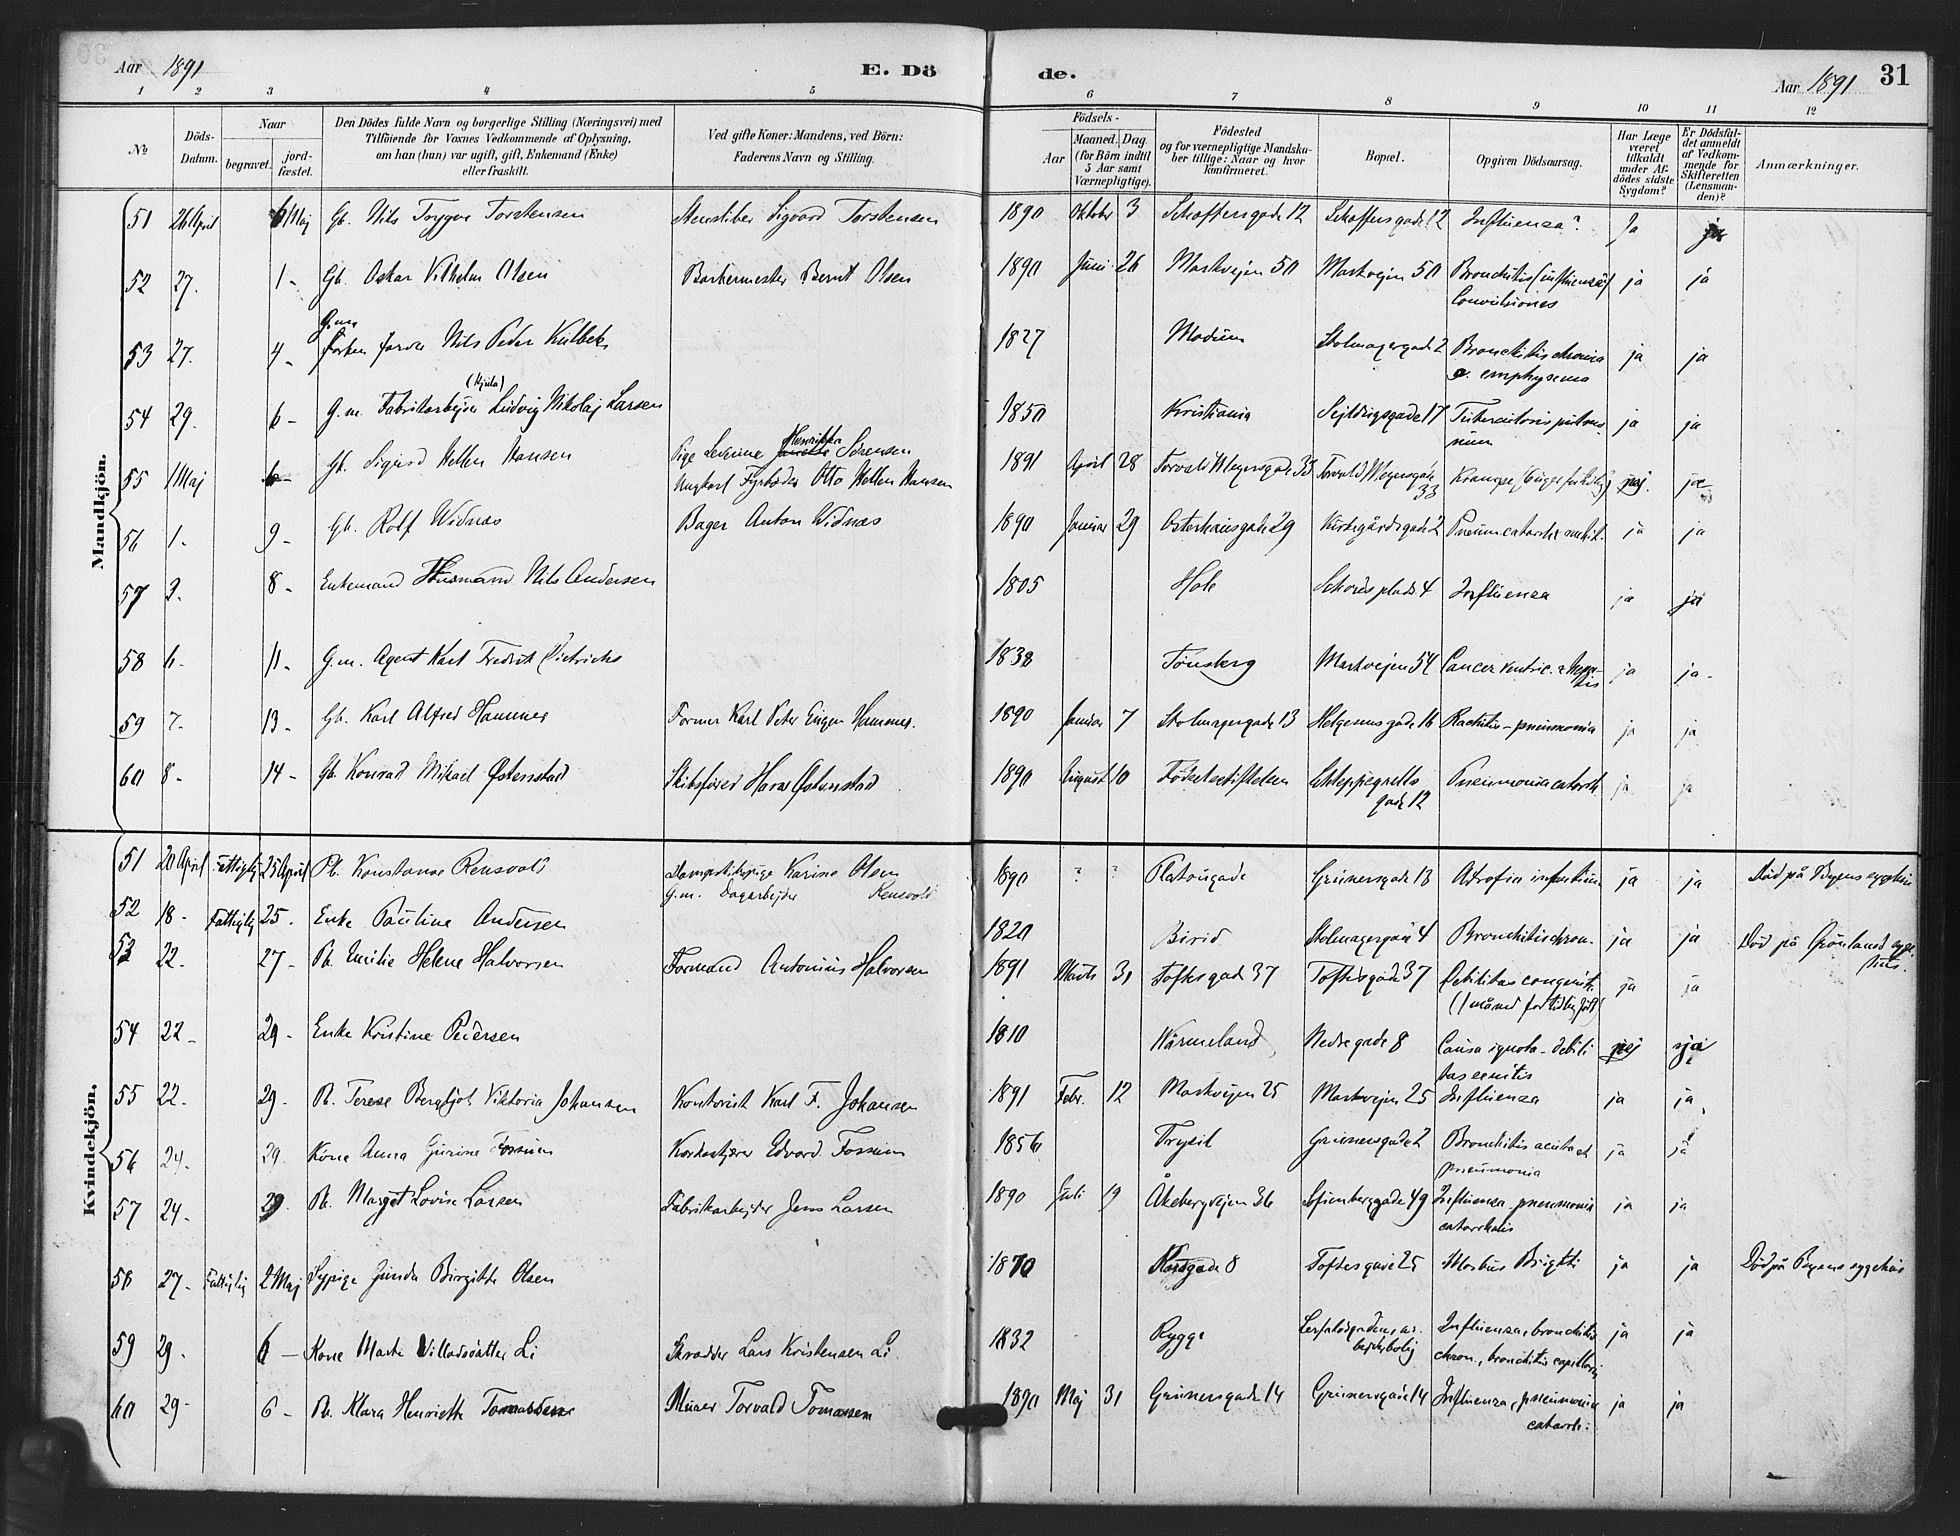 Aar 1891 E. Dö de. Aar 1891 31
1 2 3 4 5 6 7 8 9 10 11 12
No
Döds-Datum.
Naar
begravet.
jord-fæstet.
Den Dödes fulde Navn og borgerlige Stilling (Næringsvei) med
Tilföiende for Voxnes Vedkommende af Oplysning,
om han (hun) var ugift, gift, Enkemand (Enke)
eller fraskilt.
Ved gifte Koner: Mandens, ved Börn:
Faderens Navn og Stilling.
Födsels-
Aar
Maaned. Dag.
(for Börn indtil
5 Aar samt
Værnepligtige).
Födested
og for værnepligtige Mandska-
ber tillige: Naar og hvor
konfirmeret.
Bopæl.
Opgiven Dödsaarsag.
Har Læge
været
tilkaldt
under Af-
dödes sidste
Sygdom?
Er Dödsfal-
det anmeldt
af Vedkom-
mende for
Skifteretten
(Lensman-
den)?
Anmærkninger.
Mandkjön.
51 26 April 6 Maj Gb. Nils Trygve Torstensen Stenstiber Sigvard Torstensen 1890 Oktober 3 Schaffersgade 12 Schaffersgade 12 Influenza? Ja ja
52 27. 1- Gb. Oskar Vilhelm Olsen Barkermester Bernt Olsen 1890 Juni 26 Markvejen 50 Markvejen 50 Bronchitis (influenza) ja ja
Convulsiones
53 27. 4- G.m. Nils Peder 1827 Modum Stolmagergade 2 Bronchitis chronica ja ja
c. emphysema
(Kjula)
54 29. 6- G.m. Fabrikarbejder Ludvig Nikolaj Larsen 1850 Kristiania Sejldugsgade 17 Tuberculosis pulmo- ja ja
num
55 1 Maj 6- Gb. Sigurd Hansen Pige Severine Henrikka Sörensen 1891 April 28 Torvald Meyersgade 33 Torvald Meyersgade 33 Krampe nej. ja
Ungkarl Fyrböder Otto Hansen
56 1. 9- Gb. Rolf Widnæs Bager Anton Widnæs 1890 Januar 29 Osterhausgade 29 Kirkegårdsgade 2 Pneum. catarrh. ja ja
57 3. 8- Enkemand Husmand Nils Andersen 1805 Hole Schous plads 4 Influenza ja ja
58 6. 11- G.m. Agent Karl Fredrik Dietrichs 1838 Tönsberg Markvejen 54 Cancer ventric. ja ja-
59 7. 13- Gb. Karl Alfred Hammer Former Karl Peter Eugen Hammer. 1890 Januar 7 Stolmagergade 13 Helgesens gade 16 Rachitis - pneumonia ja ja
60 8- 14- Gb. Konrad Mikael Østenstad Skibsförer Hans Østenstad 1890 August 10 Födselsstiftelsen Schleppegrells Pneumonia catarrh. ja ja
gade 12
Kvindekjön.
51 20 April Fattiglig 25 April Pb. Konstanse Rensvold Dampskibspige Karine Olsen 1890 ? ? Platousgade Grünersgade 13 Atrofia infantum ja ja Död på Byens sygehus
G.m. Dagarbejder Rensvold
52 18- Fattiglig 25. Enke Pauline Andersen 1820 Birid Stolmagergade 4 Bronchitis chron. ja ja Död på Grönlands syge-
hus.
53 22- 27- Pb. Emilie Helene Halvorsen Formand Antonius Halvorsen 1891 Marts 31 Toftesgade 37 Toftesgade 37 Debilitas congenita ja ja
(1 måned for tidlig födt)
54 22- 29- Enke Kristine Pedersen 1810 Wärmeland Nedregade 8 Causa ignota - debili nej ja
tas senilis
55 22- 29- Pb. Terese Bergljot Viktoria Johansen Kontorist Karl F. Johansen 1891 Febr. 12 Markvejen 25 Markvejen 25 Influenza ja ja
56 24. 29. Kone Anna Gurine Fossum Korkeskjærer Edvard Fossum 1856 Trysil Grünersgade 2 Bronchitis acuta et ja ja
pneumonia
57 24. 29. Pb. Margot Lovise Larsen Fabrikarbejder Jens Larsen 1890 Juli 19 Åkebergvejen 36 Sofienberggade 49 Influenza, pneumonia ja ja
catarrhalis
58 27- Fattiglig 2 Maj Sypige Gunda Birgitte Olsen 1870 8 Toftesgade 25 Morbus Brigthi ja ja Död på Byens sygehus
59 29. 6- Kone Marte Villadsdatter Li Skrædder Lars Kristensen Li 1832 Rygge Influenza, bronchitis ja ja
chron., bronchitis capillaris
60 29- 6- Pb. Klara Henriette Tomassen Murer Torvald Tomassen 1890 Maj 31 Grünersgade 14 Grünersgade 14 Influenza, pneumonia ja ja
catarrh.